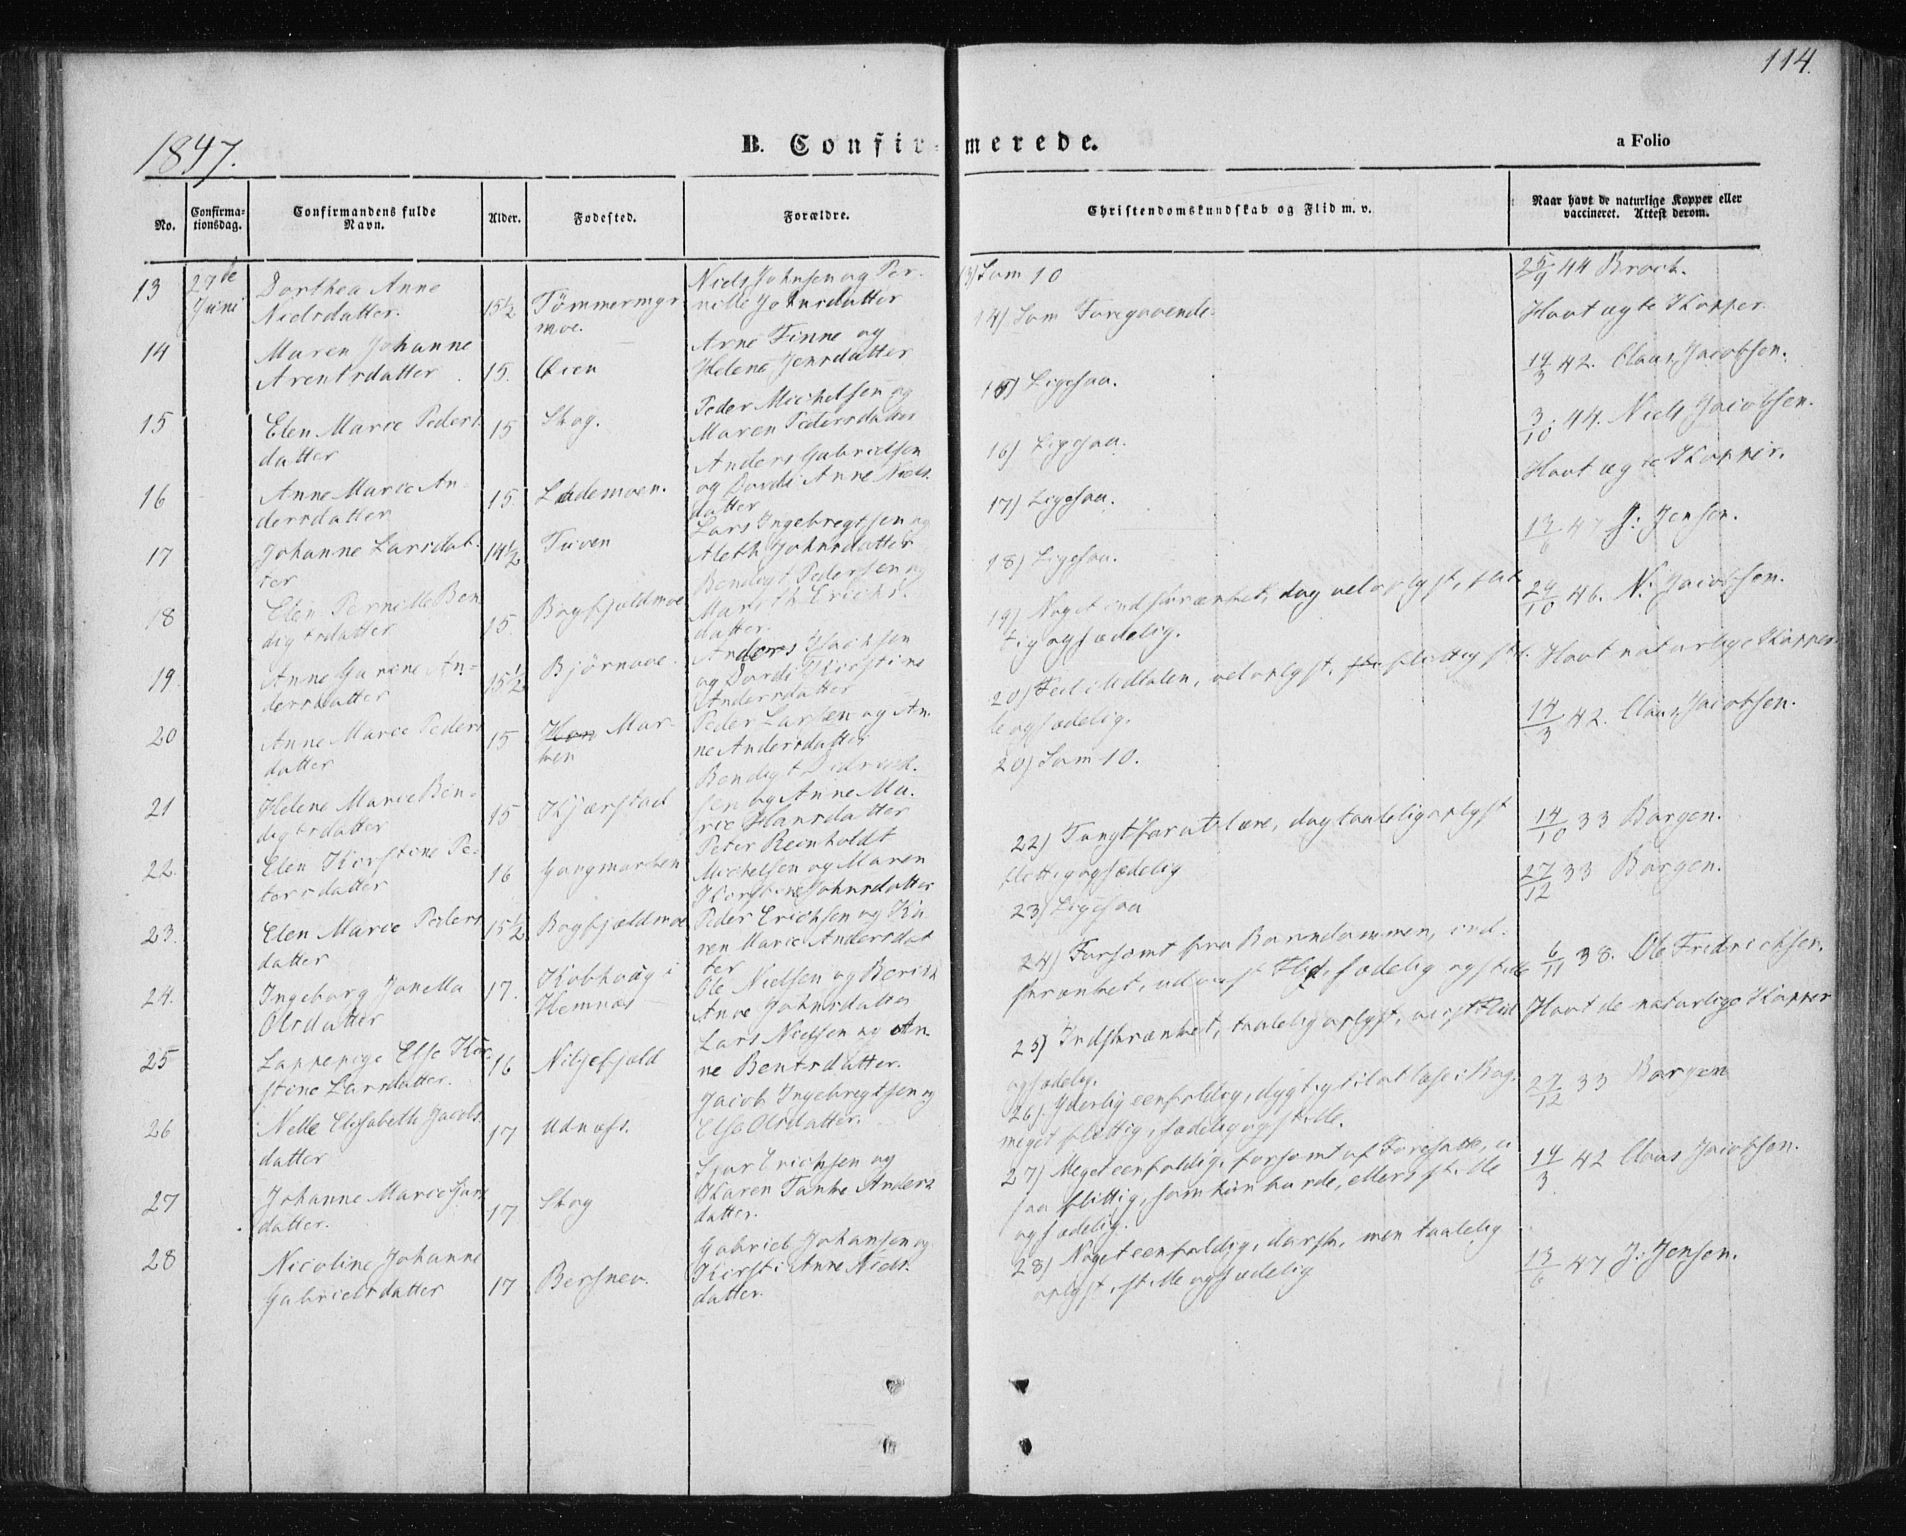 114.
1847.
B. Confirmerede.
a Folio
No.
Confirma-
tionsdag.
Confirmandens fulde
Navn.
Alder.
Fødested.
Forældre.
Christendomskundskab og Flid m. v.
Naar havt de naturlige Kopper eller
vaccineret. Attest derom.
13 27de Juni
Dorthea Anne
Nielsdatter.
15½
Tømmermyr
moe.
Niels Johnsen og Per-
nille Johnsdatter
13) Som 10
25/9 44 Broch.
14
Maren Johanne
Arentsdatter
15.
Øien
Arne Finne og
Helene Jensdatter
14) Som Foregaaende.
Havt ægte Kopper.
15
Elen Marie Peders
datter
15
Skog.
Peder Michelsen og
Maren Pedersdatter
15) Ligesaa.
14/3 42. Claus Jacobsen.
16
Anne Marie An-
dersdatter
15
Lademoen.
Anders Gabrielsen
og Dordi Anne Niels-
datter
16) Ligesaa.
3/10 44. Niels Jacobsen.
17
Johanne Larsdat-
ter
14½
Tuven
Lars Ingebregtsen og
Aleth Johnsdatter
17) Ligesaa.
Havt ægte Kopper.
18
Elen Pernille Ben
digtsdatter
15.
Bagfjeldmoe
Bendigt Pedersen og
Marith Erichs-
datter.
18) Ligesaa.
13/6 47 J: Jensen.
19.
Anne Garine An-
dersdatter
15½
Bjørnaae.
Anders Isachsen
og Dordi Kirstine
Andersdatter
19) Noget indskrænket, dog vel oplyst, flit
tig og sædelig.
24/10 46. N: Jacobsen.
20
Anne Marie Peders
datter
15
Mar-
ken
Peder Larsen og An-
ne Andersdatter
20) Feil i Udtalen, vel oplyst, flittig stil-
le og sædelig.
Havt naturlige Kopper
21
Helene Marie Ben-
digtsdatter
15
Kjærstad
Bendigt Didrich-
sen og Anne Ma-
rie Hansdatter
20) Som 10.
14/3 42. Claus Jacobsen.
22.
Elen Kirstine Pe-
tersdatter
16
Gangmarken
Peter Reinholdt
Michelsen og Maren
Kirstine Johnsdatter
22) Tungt for at lære, dog taalelig oplyst
flittig og sædelig
14/10 33 Borgen.
23.
Elen Marie Peders
datter
15½
Bagfjældmoe
Peder Erichsen og Ka
ren Marie Andersdat
ter
23) Ligesaa
27/12 33 Borgen.
24.
Ingeborg Janella
Olsdatter
17.
Kobhoug i
Hemnæs
Ole Nielsen og Berith
Anne Johnsdatter
24) Forsømt fra Barndommen, ind-
skrænket, udviist Flid, sædelig og stille
6/11 38. Ole Fredrichsen.
25
Lappepige Else Kir
stine Larsdatter.
16
Niljefjæld
Lars Nielsen og An-
ne Bentsdatter.
25) Indskrænket, taalelig oplyst, viist Flid
og sædelig.
Havt de naturlige Kopper
26
Nelle Elisabeth Jacobs
datter
17
Udnæs.
Jacob Ingebregtsen og
Else Olsdatter.
26) Yderlig eenfoldig, dygtig til at læse i Bog,
meget flittig, sædelig og stille.
27/12 33 Borgen
27
Johanne Marie Sjurs
datter.
17
Skog
Sjur Erichsen og
Karen Tanke Anders
datter.
27) Meget eenfoldig, forsømt af Foresatte, ei
saa flittig, som hun burde, ellers stille
og sædelig.
14/3 42 Claus Jacobsen.
28
Nicoline Johanne
Gabrielsdatter
17
Bersnev.
Gabriel Johansen og
Kirsti Anne Niels-
datter.
28) Noget eenfoldig, dorsk, men taalelig
oplyst, stille og sædelig
13/6 47 J: Jensen.